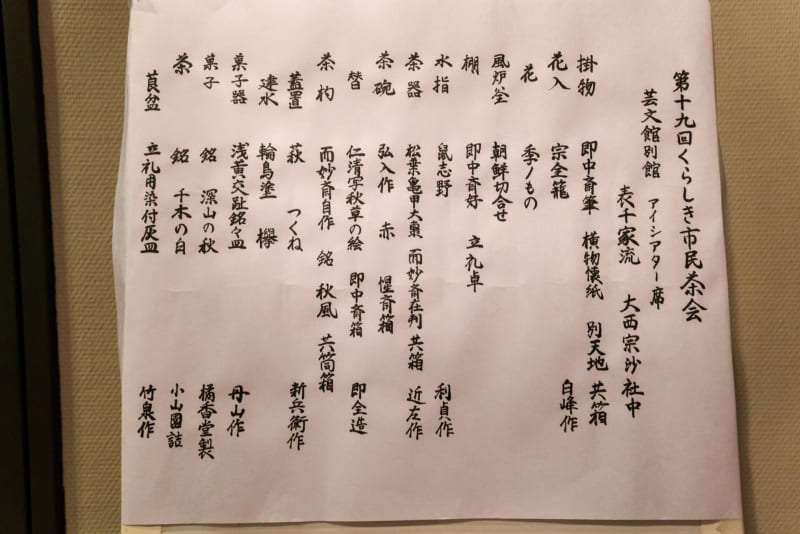 第十九回くらしき市民茶会
芸文館別館 アイシアター席
表千家流 大西宗沙社中
掛物 即中斎筆 横物懐紙 別天地 共箱
花入 宗全籠 白峰作
花 季ノもの
風炉釜 朝鮮切合せ
棚 即中斎好 立礼卓
水指 鼠志野 利貞作
茶器 松葉亀甲大棗 而妙斎在判 共箱 近左作
茶碗 弘入作 赤 惺斎箱
替 仁清写秋草の絵 即中斎箱 即全造
茶杓 而妙斎自作 銘 秋風 共筒箱
蓋置 萩 つくね 新兵衛作
建水 輪島塗 欅
菓子器 浅黄交趾銘々皿 丹山作
菓子 銘 深山の秋 橘香堂製
茶 銘 千木の白 小山園詰
莨盆 立礼用染付灰皿 竹泉作